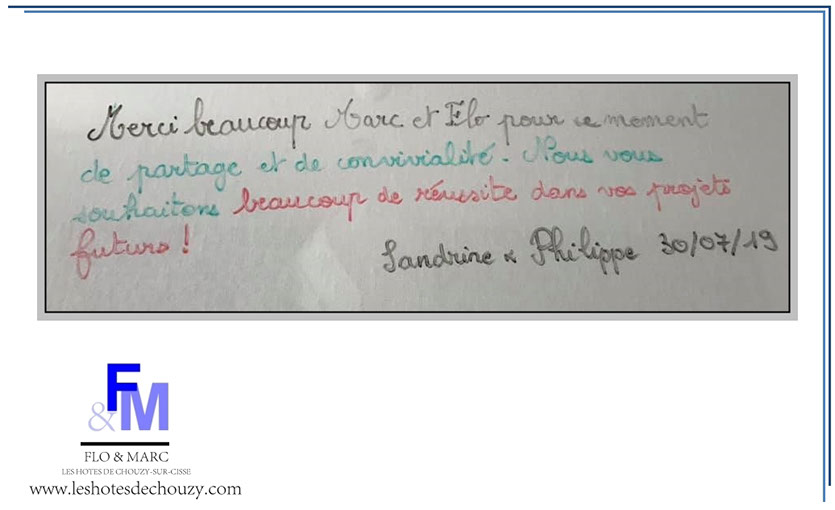 Merci beaucoup Marc et Flo pour ce moment
de partage et de convivialité. Nous vous
souhaitons beaucoup de réussite dans vos projets
futurs !
Sandrine & Philippe 30/07/19
F&M
FLO & MARC
LES HOTES DE CHOUZY-SUR-CISSE
www.leshotesdechouzy.com